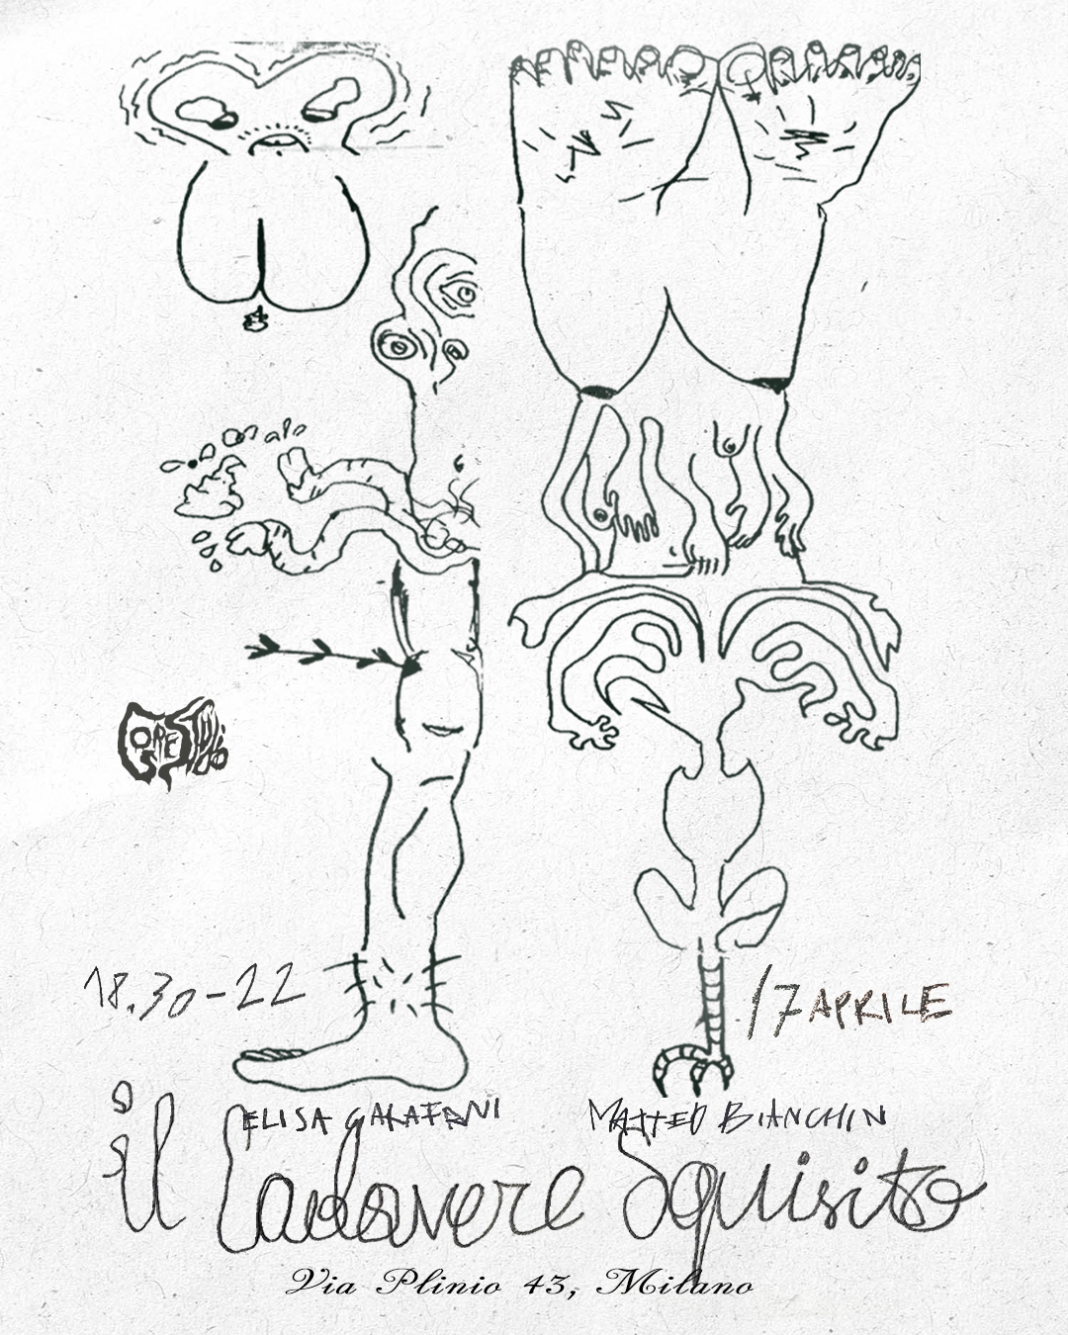 18.30-22
17 APRILE
ELISA
MATTEO BIANCHIN
il Cadavere Squisito
Via Plinio 43, Milano